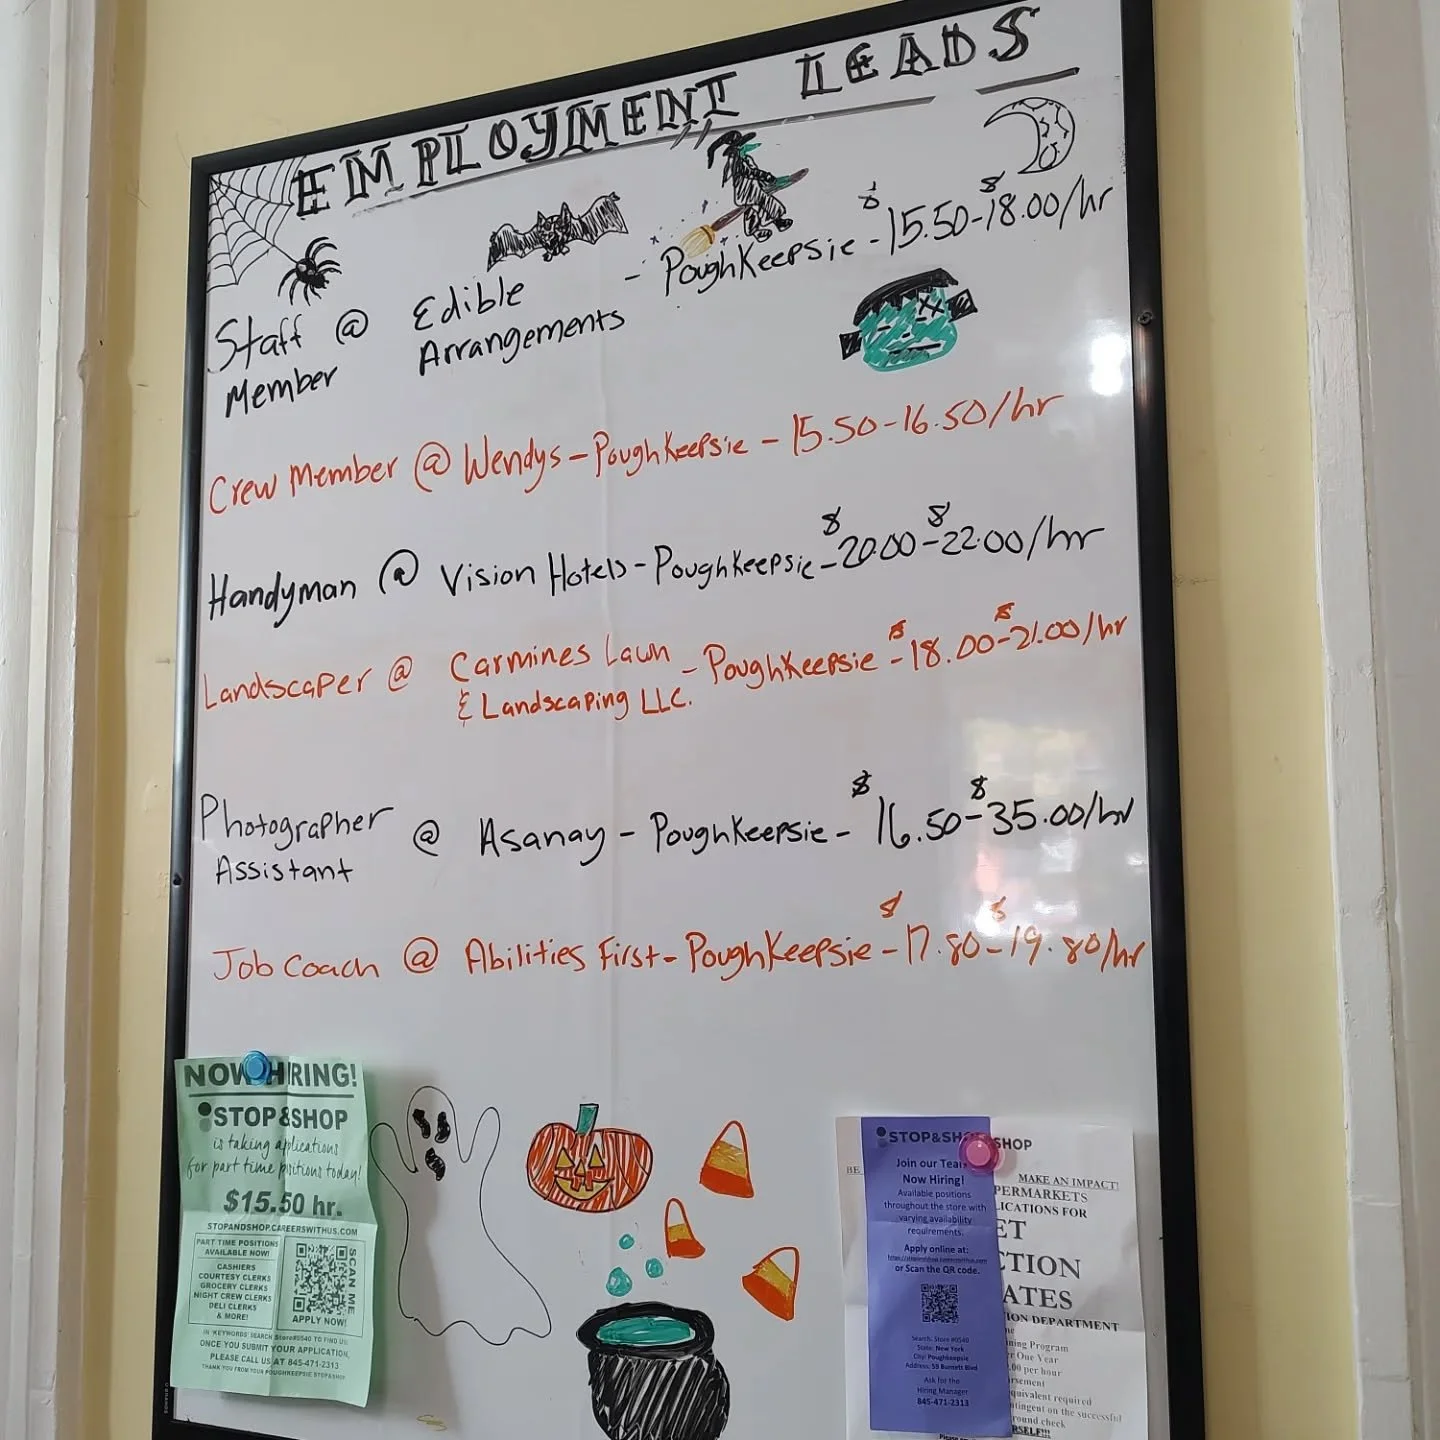 EMPLOYMENT LEADS
Staff Member @ Edible Arrangements - Poughkeepsie - $15.50-$18.00/hr
Crew Member @ Wendys - Poughkeepsie - 15.50-16.50/hr
Handyman @ Vision Hotels - Poughkeepsie - $20.00-$22.00/hr
Landscaper @ Carmines Lawn & Landscaping LLC. - Poughkeepsie - $18.00-$21.00/hr
Photographer Assistant @ Asanay - Poughkeepsie - $16.50-$35.00/hr
Job Coach @ Abilities First - Poughkeepsie - $17.80-$19.80/hr
NOW HIRING!
STOP&SHOP
is taking applications
for part time positions today!
$15.50 hr.
STOPANDSHOP.CAREERSWITHUS.COM
PART TIME POSITIONS
AVAILABLE NOW!
CASHIERS
COURTESY CLERKS
GROCERY CLERKS
NIGHT CREW CLERKS
DELI CLERKS
& MORE!
SCAN ME
APPLY NOW!
IN 'KEYWORDS' SEARCH Store#0540 TO FIND US
ONCE YOU SUBMIT YOUR APPLICATION,
PLEASE CALL US AT 845-471-2313
THANK YOU FROM YOUR POUGHKEEPSIE STOP&SHOP
STOP&SHOP
Join our Team
Now Hiring!
Available positions
throughout the store with
varying availability
requirements.
Apply online at:
or Scan the QR code.
Search: Store #0540
State: New York
City: Poughkeepsie
Address: 59 Burnett Blvd
Ask for the
Hiring Manager
845-471-2313
SHOP
BE
MAKE AN IMPACT!
PERMARKETS
LICATIONS FOR
ET
CTION
ATES
ION DEPARTMENT
ning Program
r One Year
.00 per hour
rsement
quivalent required
ntingent on the successful
round check
RSELF!!!